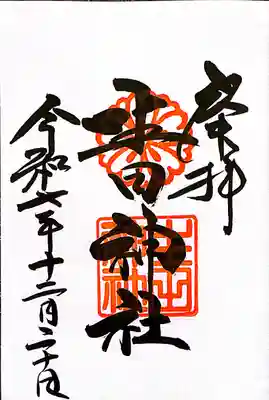 奉拝
平田神社
令和六年十二月二十日